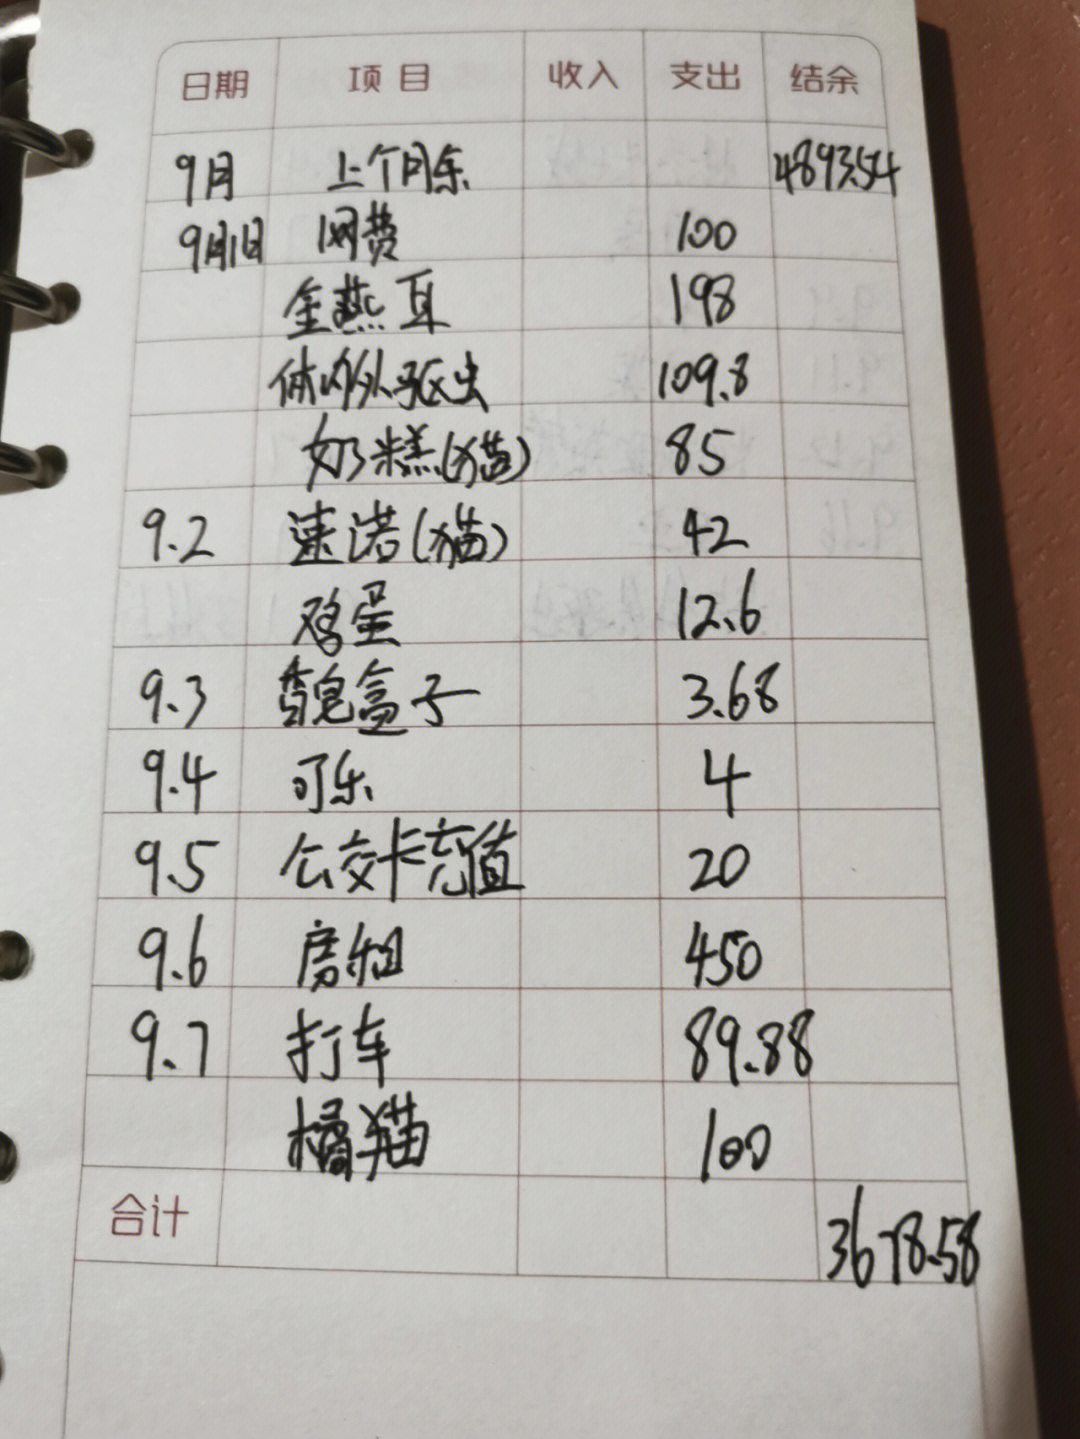 日期 项目 收入 支出 结余
9月 上个月余 4893.54
9月1日 网费 100
金燕耳 198
体内外驱虫 109.8
奶糕(猫) 85
9.2 速诺(猫) 42
鸡蛋 12.6
9.3 香皂盒子 3.68
9.4 可乐 4
9.5 公交卡充值 20
9.6 房租 450
9.7 打车 89.88
橘猫 100
合计 3678.58